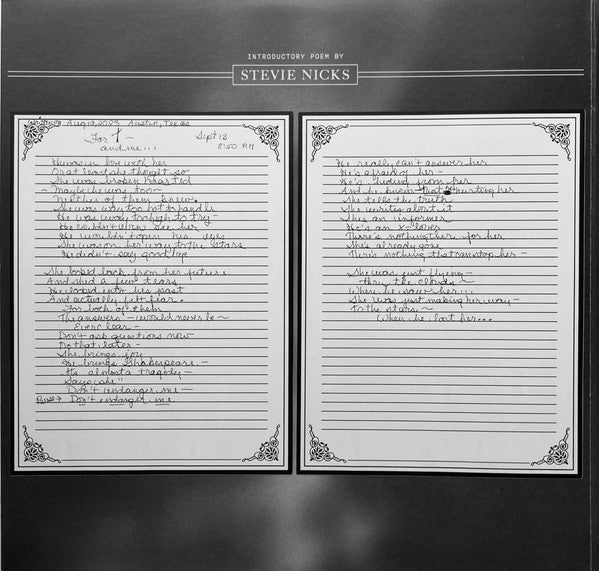 INTRODUCTORY POEM BY
STEVIE NICKS
Written Aug 13, 2023 Austin, Texas
For T —
and me...
Sept 13
8:50 PM
He was in love with her
Or at least she thought so
She was broken hearted
~ Maybe he was too ~
Neither of them knew
She was way too hot to handle
He was way too high to try —
He couldn't even see her
He wouldn't open his eyes
She was on her way to the stars
He didn't say goodbye
She looked back from her future
And shed a few tears
He looked into his past
And actually felt fear.
For both of them
The answers — would never be ~
Ever clear —
Don't ask questions now
Do that later —
She brings joy
He brings Shakespeare —
It's almost a tragedy —
Says she"
Don't endanger me —
Don't endanger me.
He really can't answer her
He's afraid of her —
He's hiding from her
And he knows that he's hurting her
She tells the truth
She writes about it
She's an informer
He's an x-lover
There's nothing there for her
She's already gone
There's nothing that can stop her —
She was just flying —
thru the clouds ~
When he saw her...
She was just making her way —
To the stars ~
When he lost her...